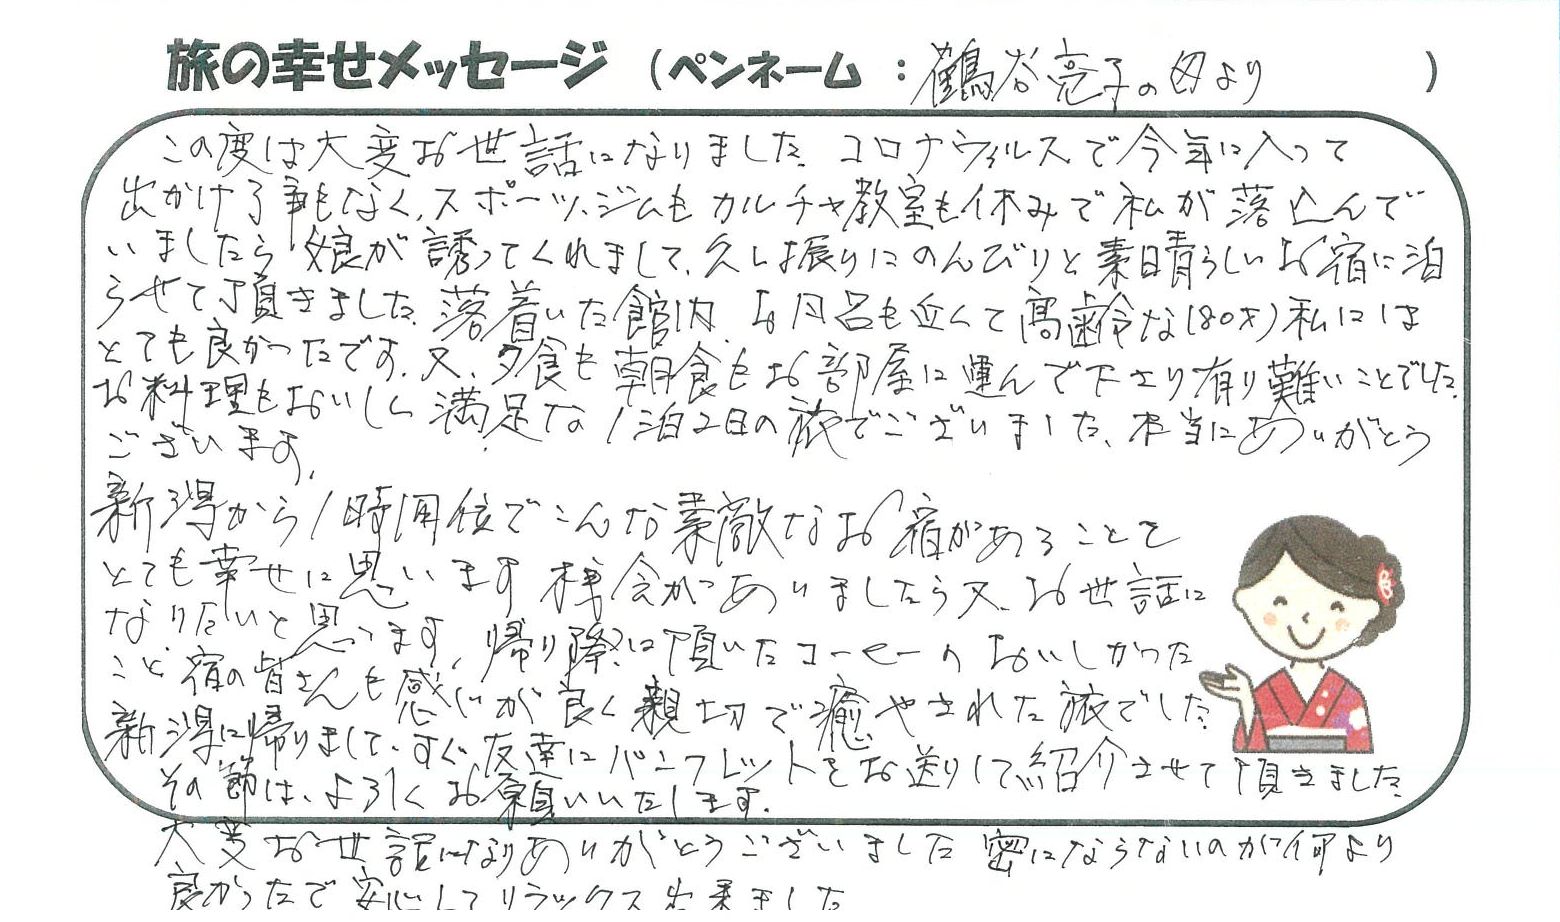 旅の幸せメッセージ (ペンネーム : 鶴谷亮子の母より )
この度は大変お世話になりました。コロナウィルスで今年に入って
出かける事もなく、スポーツ、ジムもカルチャ教室も休みで私が落込んで
いましたら娘が誘ってくれまして、久し振りにのんびりと素晴らしいお宿に泊
らせて頂きました。落着いた館内、お風呂も近くて高齢な(80才)私には
とても良かったです。又、夕食も朝食もお部屋に運んで下さり有り難いことでした。
お料理もおいしく満足な1泊2日の旅でございました。本当にありがとう
ございます。
新潟から1時間位でこんな素敵なお宿があることを
とても幸せに思います 機会がありましたら又、お世話に
なりたいと思います。帰り際に頂いたコーヒーのおいしかった
こと、宿の皆さんも感じが良く親切で癒やされた旅でした。
新潟に帰りまして、すぐ友達にパンフレットをお送りして紹介させて頂きました。
その節は、よろしくお願いいたします。
大変お世話になりありがとうございました 密にならないのが何より
良かったで安心してリラックス出来ました